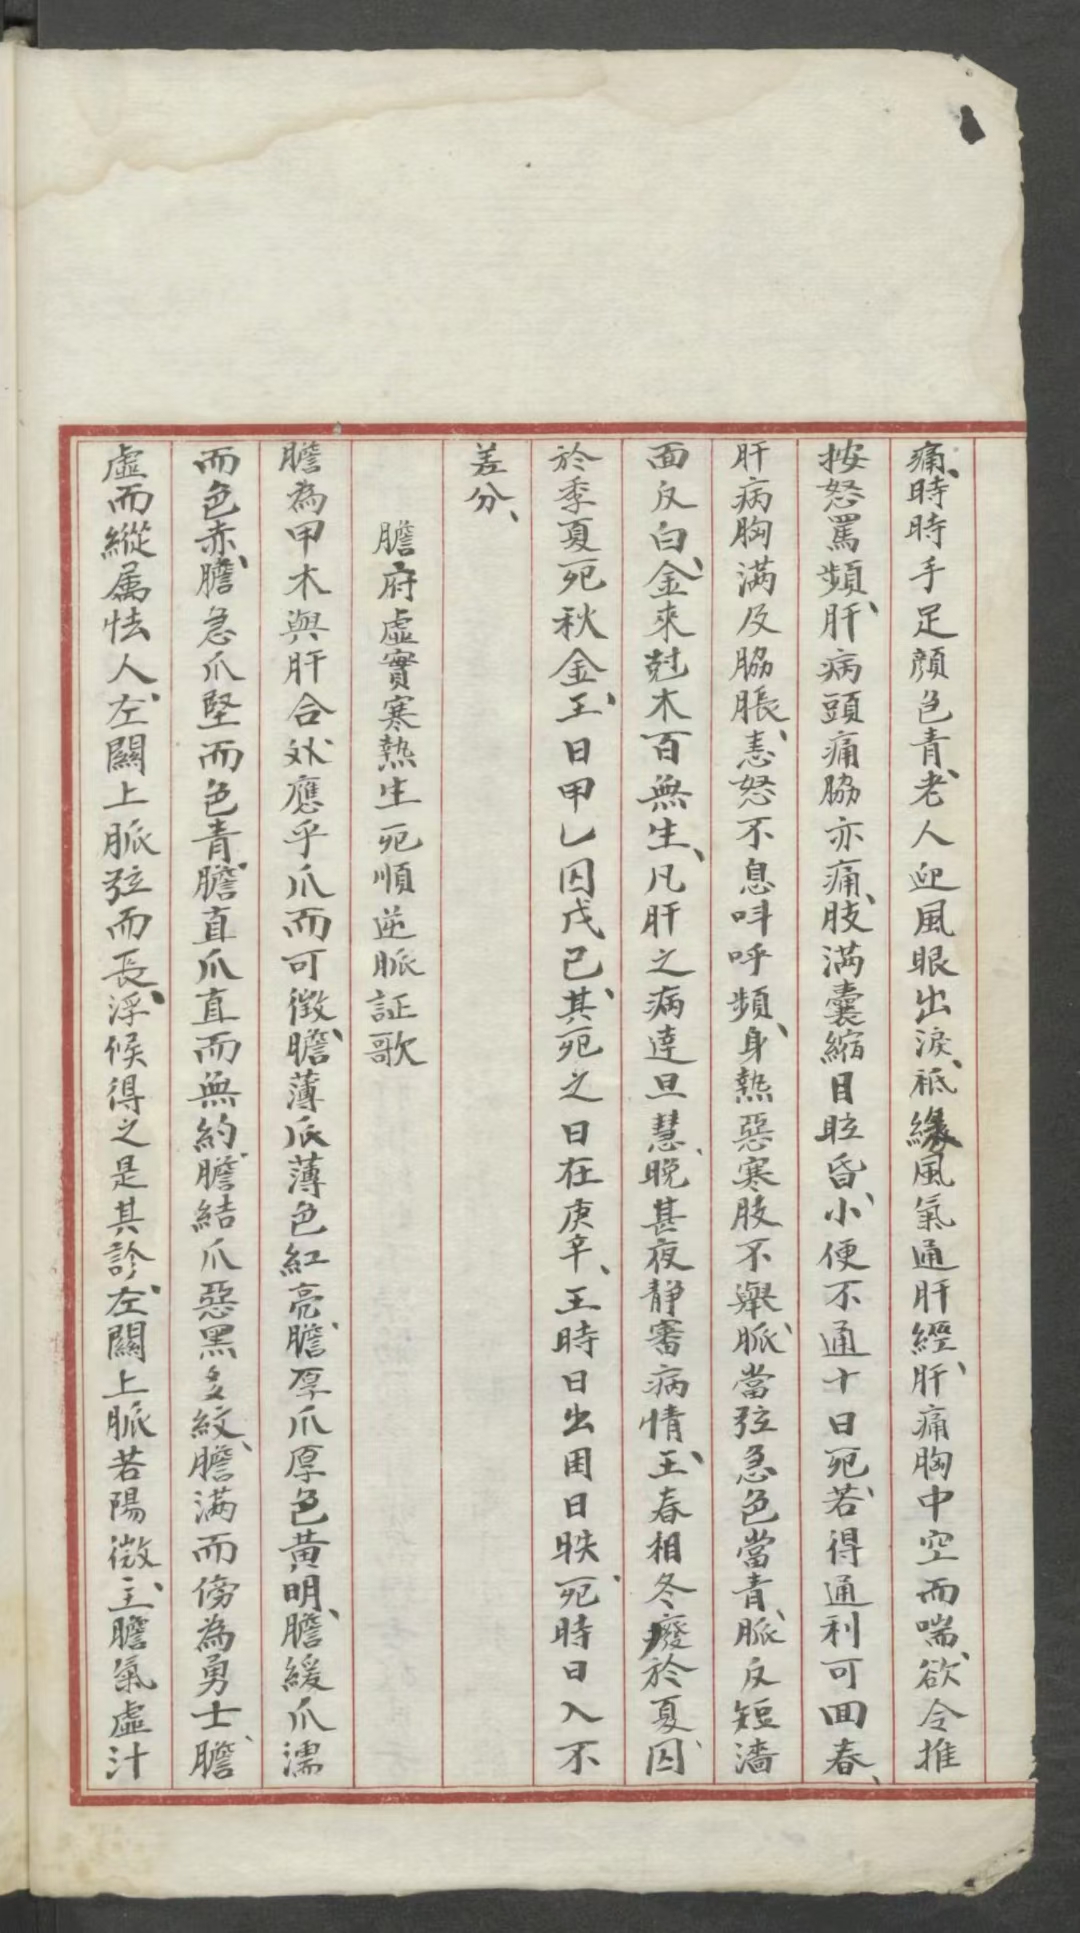 痛、時時手足顏色青、老人迎風眼出淚、祗緣風氣通肝經、肝痛胸中空而喘、欲令推
按怒罵頻、肝病頭痛脇亦痛、肢滿囊縮目眩昏、小便不通十日死、若得通利可回春、
肝病胸滿及脇脹、恚怒不息呌呼頻、身熱惡寒肢不舉、脈當弦急色當青、脈反短濇
面反白、金來尅木百無生、凡肝之病達旦慧、晚甚夜靜審病情、王春相冬廢於夏、囚
於季夏死秋金、王日甲乙囚戊己、其死之日在庚辛、王時日出困日昳、死時日入不
差分、
膽府虛實寒熱生死順逆脈証歌
膽為甲木與肝合、外應乎爪而可徵、膽薄爪薄色紅亮、膽厚爪厚色黃明、膽緩爪濡
而色赤、膽急爪堅而色青、膽直爪直而無約、膽結爪惡黑多紋、膽滿而傍為勇士、膽
虛而縱属怯人、左關上脈弦而長、浮候得之是其診、左關上脈若陽微、主膽氣虛汁